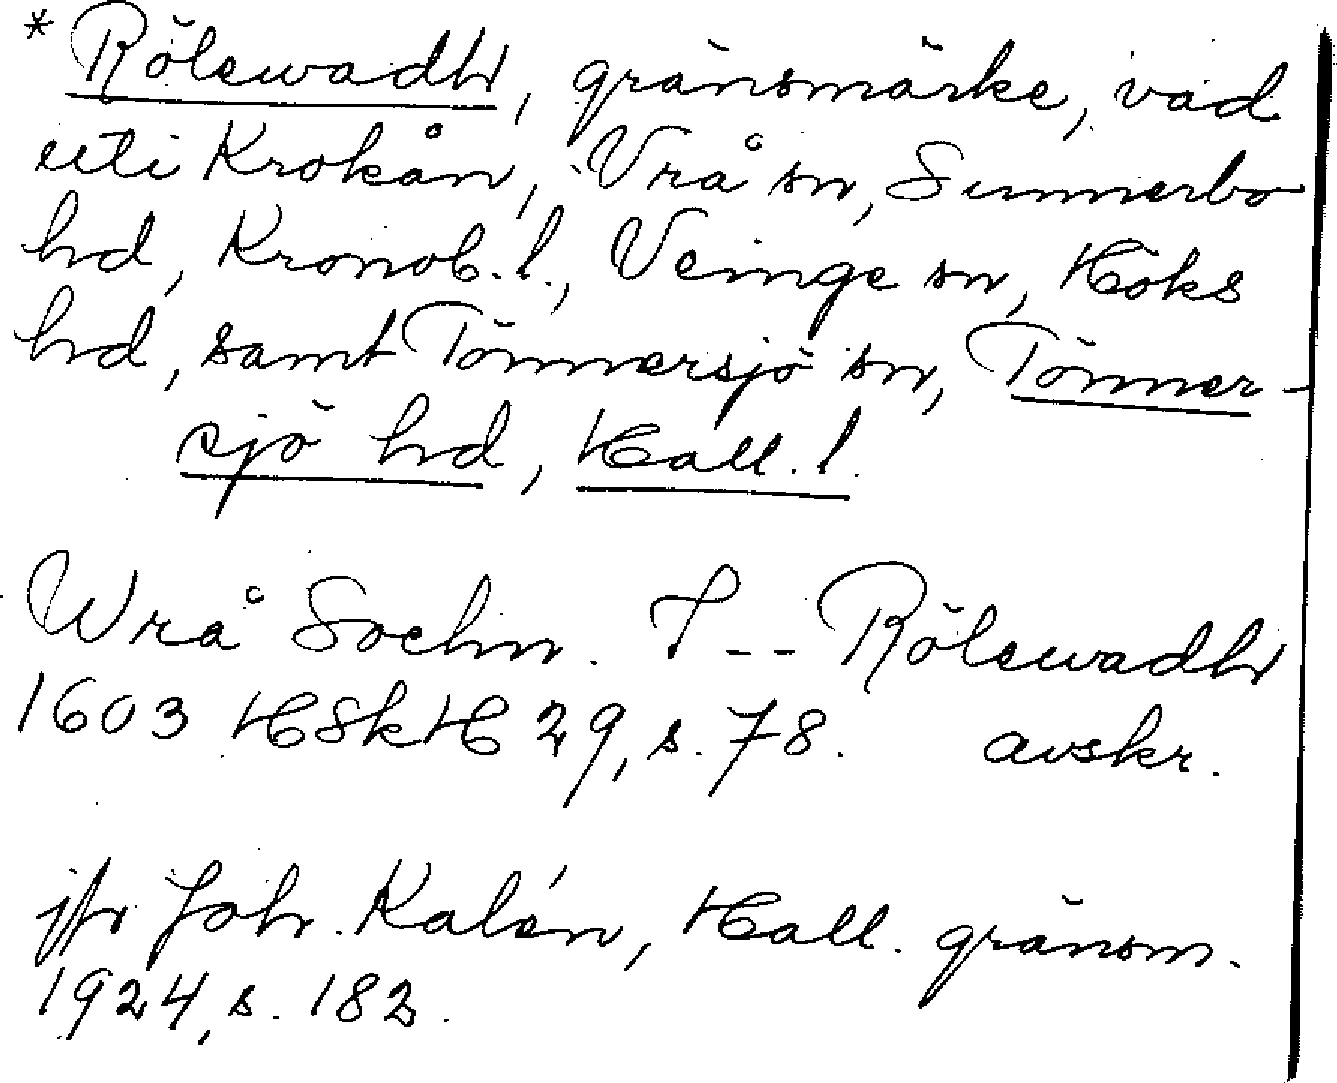 * Rölewadh, gränsmärke, vad
uti Krokån, Vrå sn, Sunnerbo
hd, Kronob. l., Veinge sn, Höks
hd, samt Tönnersjö sn, Tönner-
sjö hd, Hall. l.
Wrå Sochn. I -- Rölewadh
1603 HSkH 29, s. 78. avskr.
jfr Joh. Kalén, Hall. gränsm.
1924, s. 182.